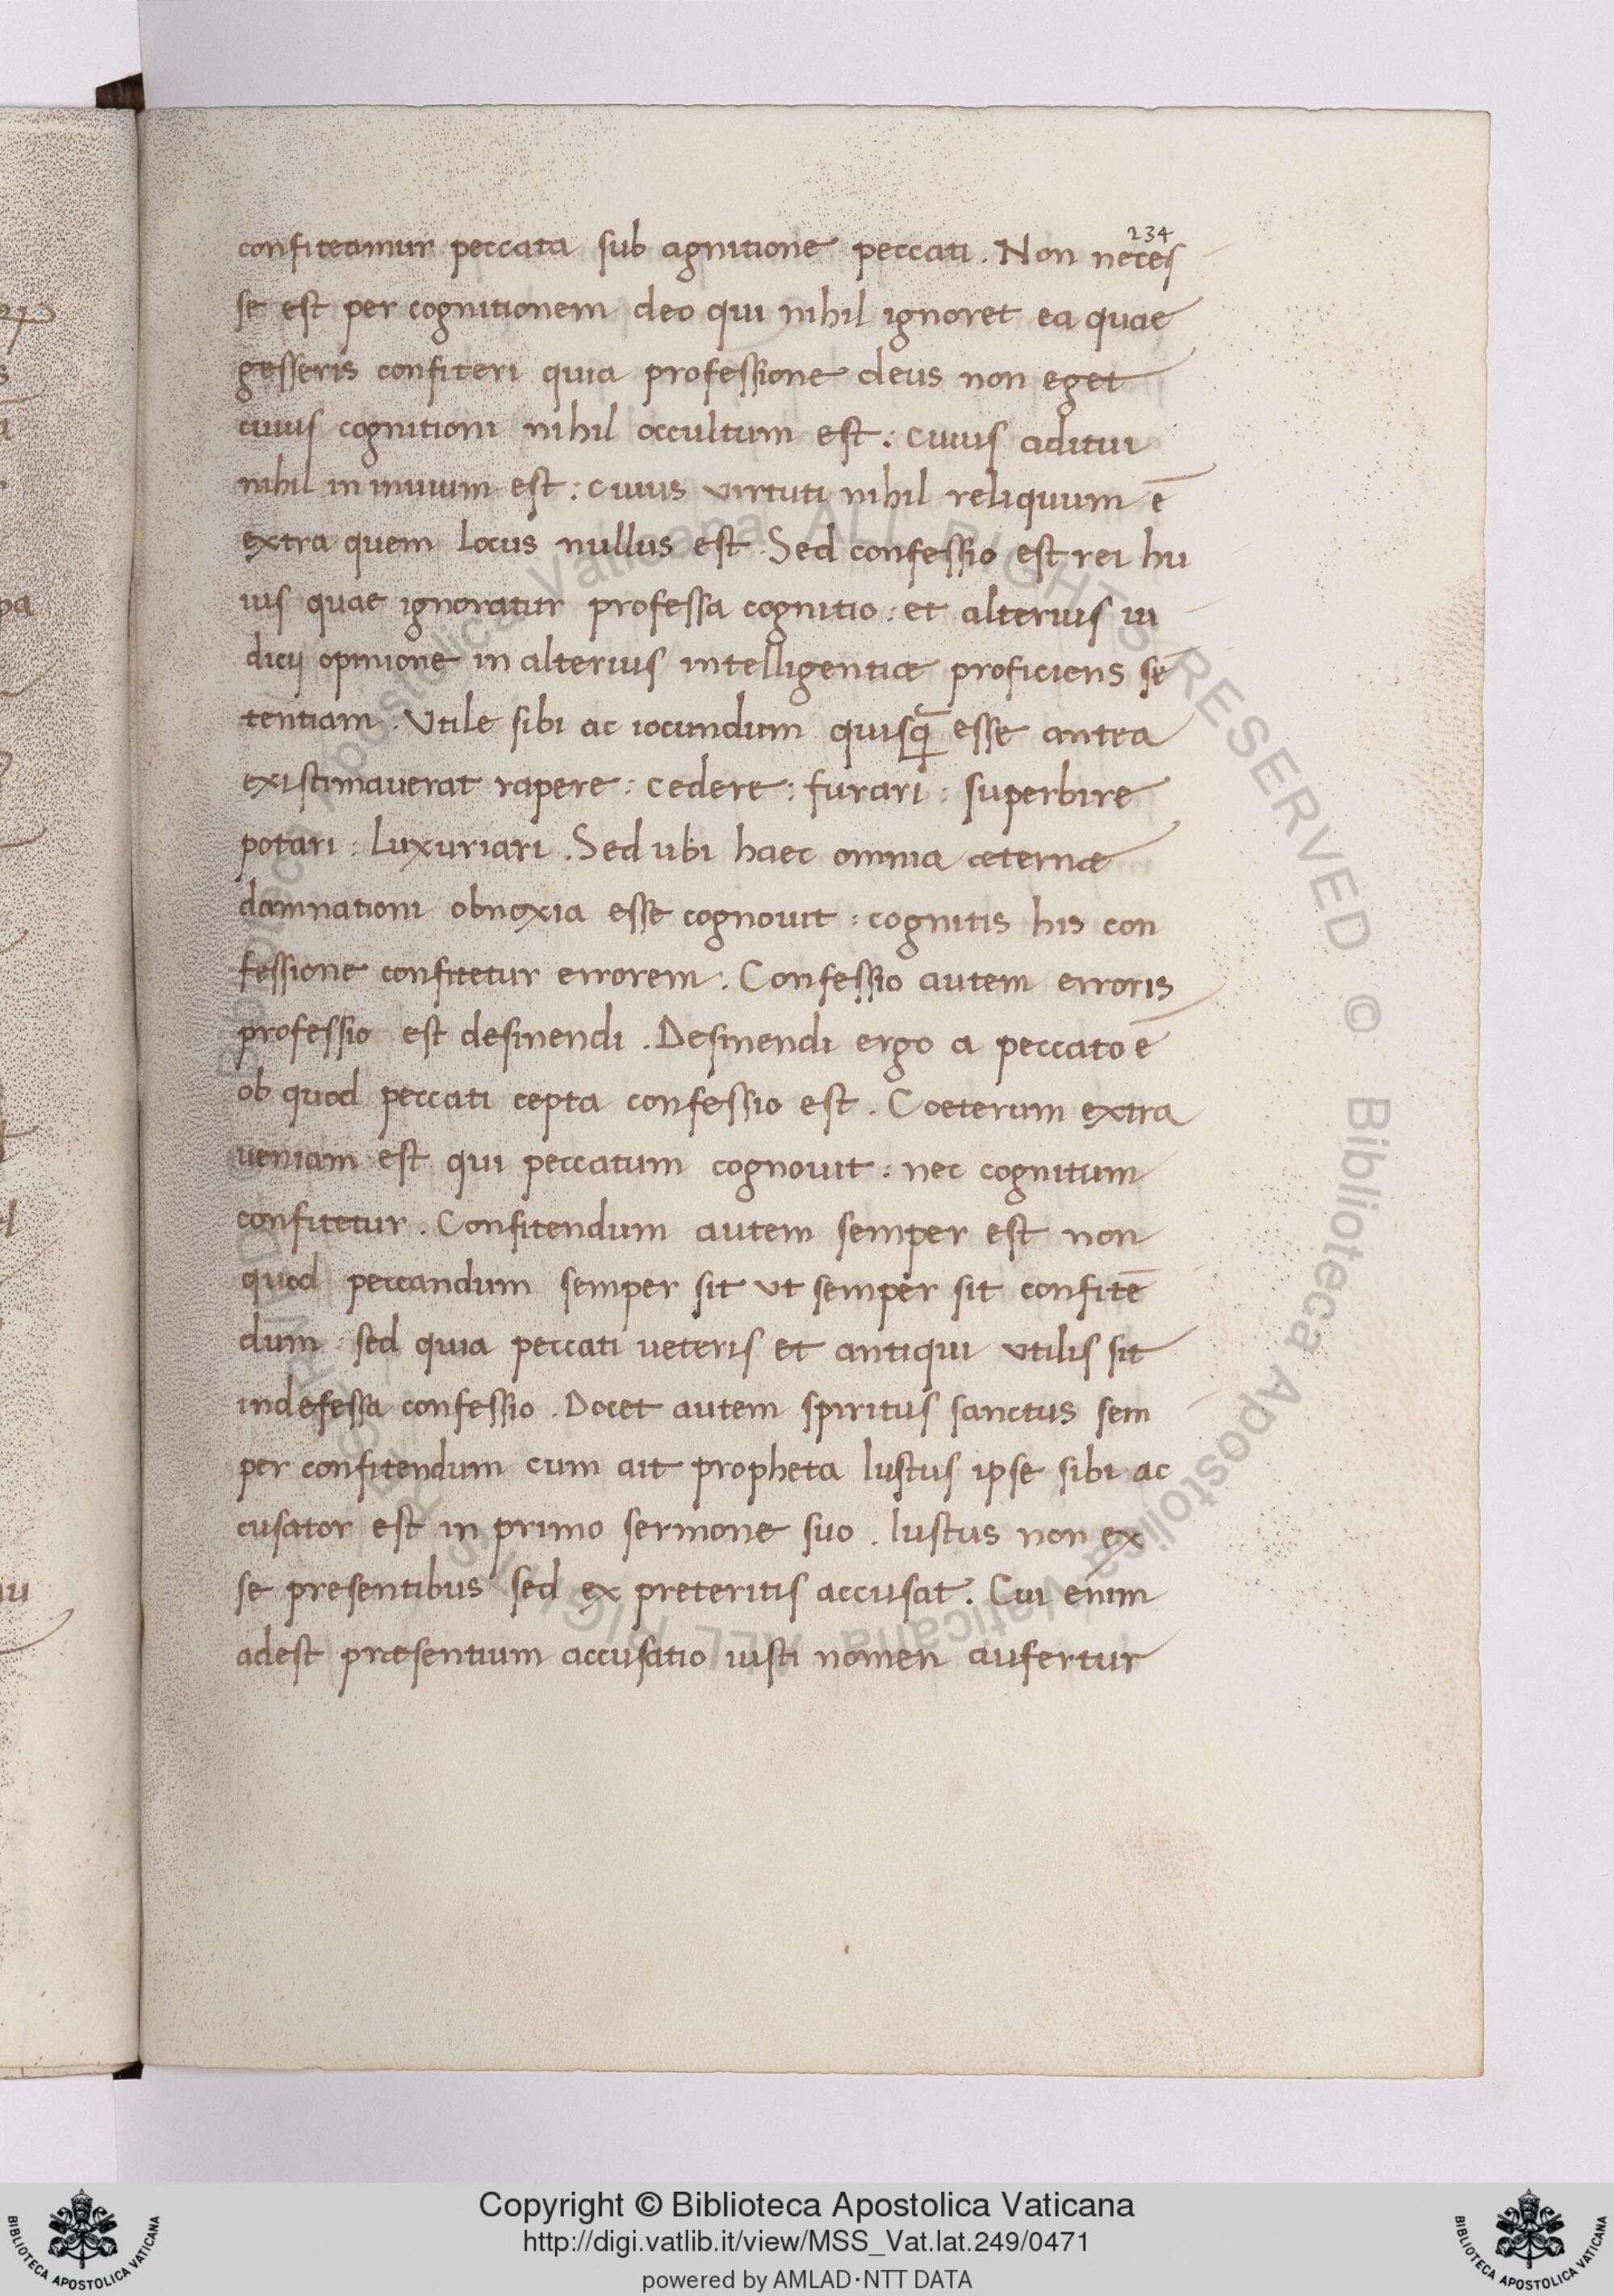 234
confiteamur peccata sub agnitione peccati. Non neces
se est per cognitionem deo qui nihil ignoret ea quae
gesseris confiteri quia professione deus non eget
cuius cognitioni nihil occultum est: cuius aditui
nihil in inuium est: cuius virtuti nihil reliquum ē
extra quem locus nullus est. Sed confessio est rei hu
ius quae ignoratur professa cognitio: et alterius iu
dicij opinione in alterius intelligentiae proficiens sē
tentiam. Utile sibi ac iocundum quisq̄ esse antea
existimauerat rapere: cedere: furari: superbire
potari: luxuriari. Sed ubi haec omnia aeternae
damnationi obnoxia esse cognouit: cognitis his con
fessione confitetur errorem. Confessio autem erroris
professio est desinendi. Desinendi ergo a peccato ē
ob quod peccati cepta confessio est. Coeterum extra
ueniam est qui peccatum cognouit: nec cognitum
confitetur. Confitendum autem semper est non
quod peccandum semper sit ut semper sit confitē
dum: sed quia peccati ueteris et antiqui utilis sit
indefessa confessio. Docet autem spiritus sanctus sem
per confitendum cum ait propheta Iustus ipse sibi ac
cusator est in primo sermone suo. Iustus non ex
se presentibus sed ex preteritis accusat. Cui enim
adest praesentium accusatio iusti nomen aufertur
Copyright © Biblioteca Apostolica Vaticana
http://digi.vatlib.it/view/MSS_Vat.lat.249/0471
powered by AMLAD·NTT DATA
BIBLIOTECA APOSTOLICA VATICANA
BIBLIOTECA APOSTOLICA VATICANA